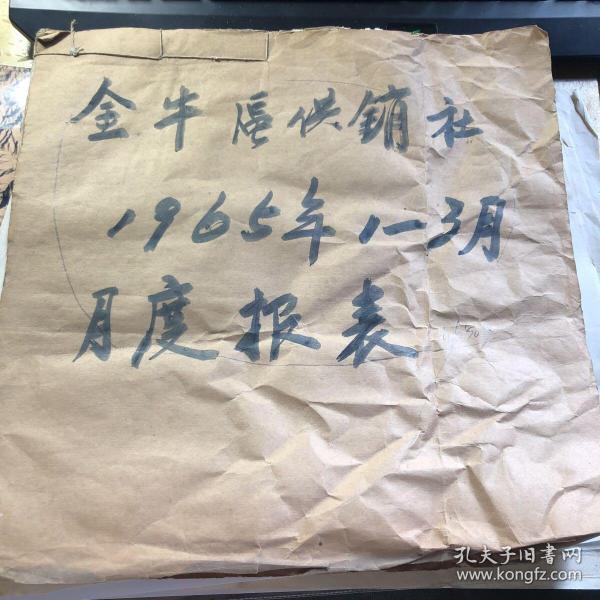 金牛區供銷社
1965年1-3月
月度报表
孔夫子旧書网
www.kongfz.com